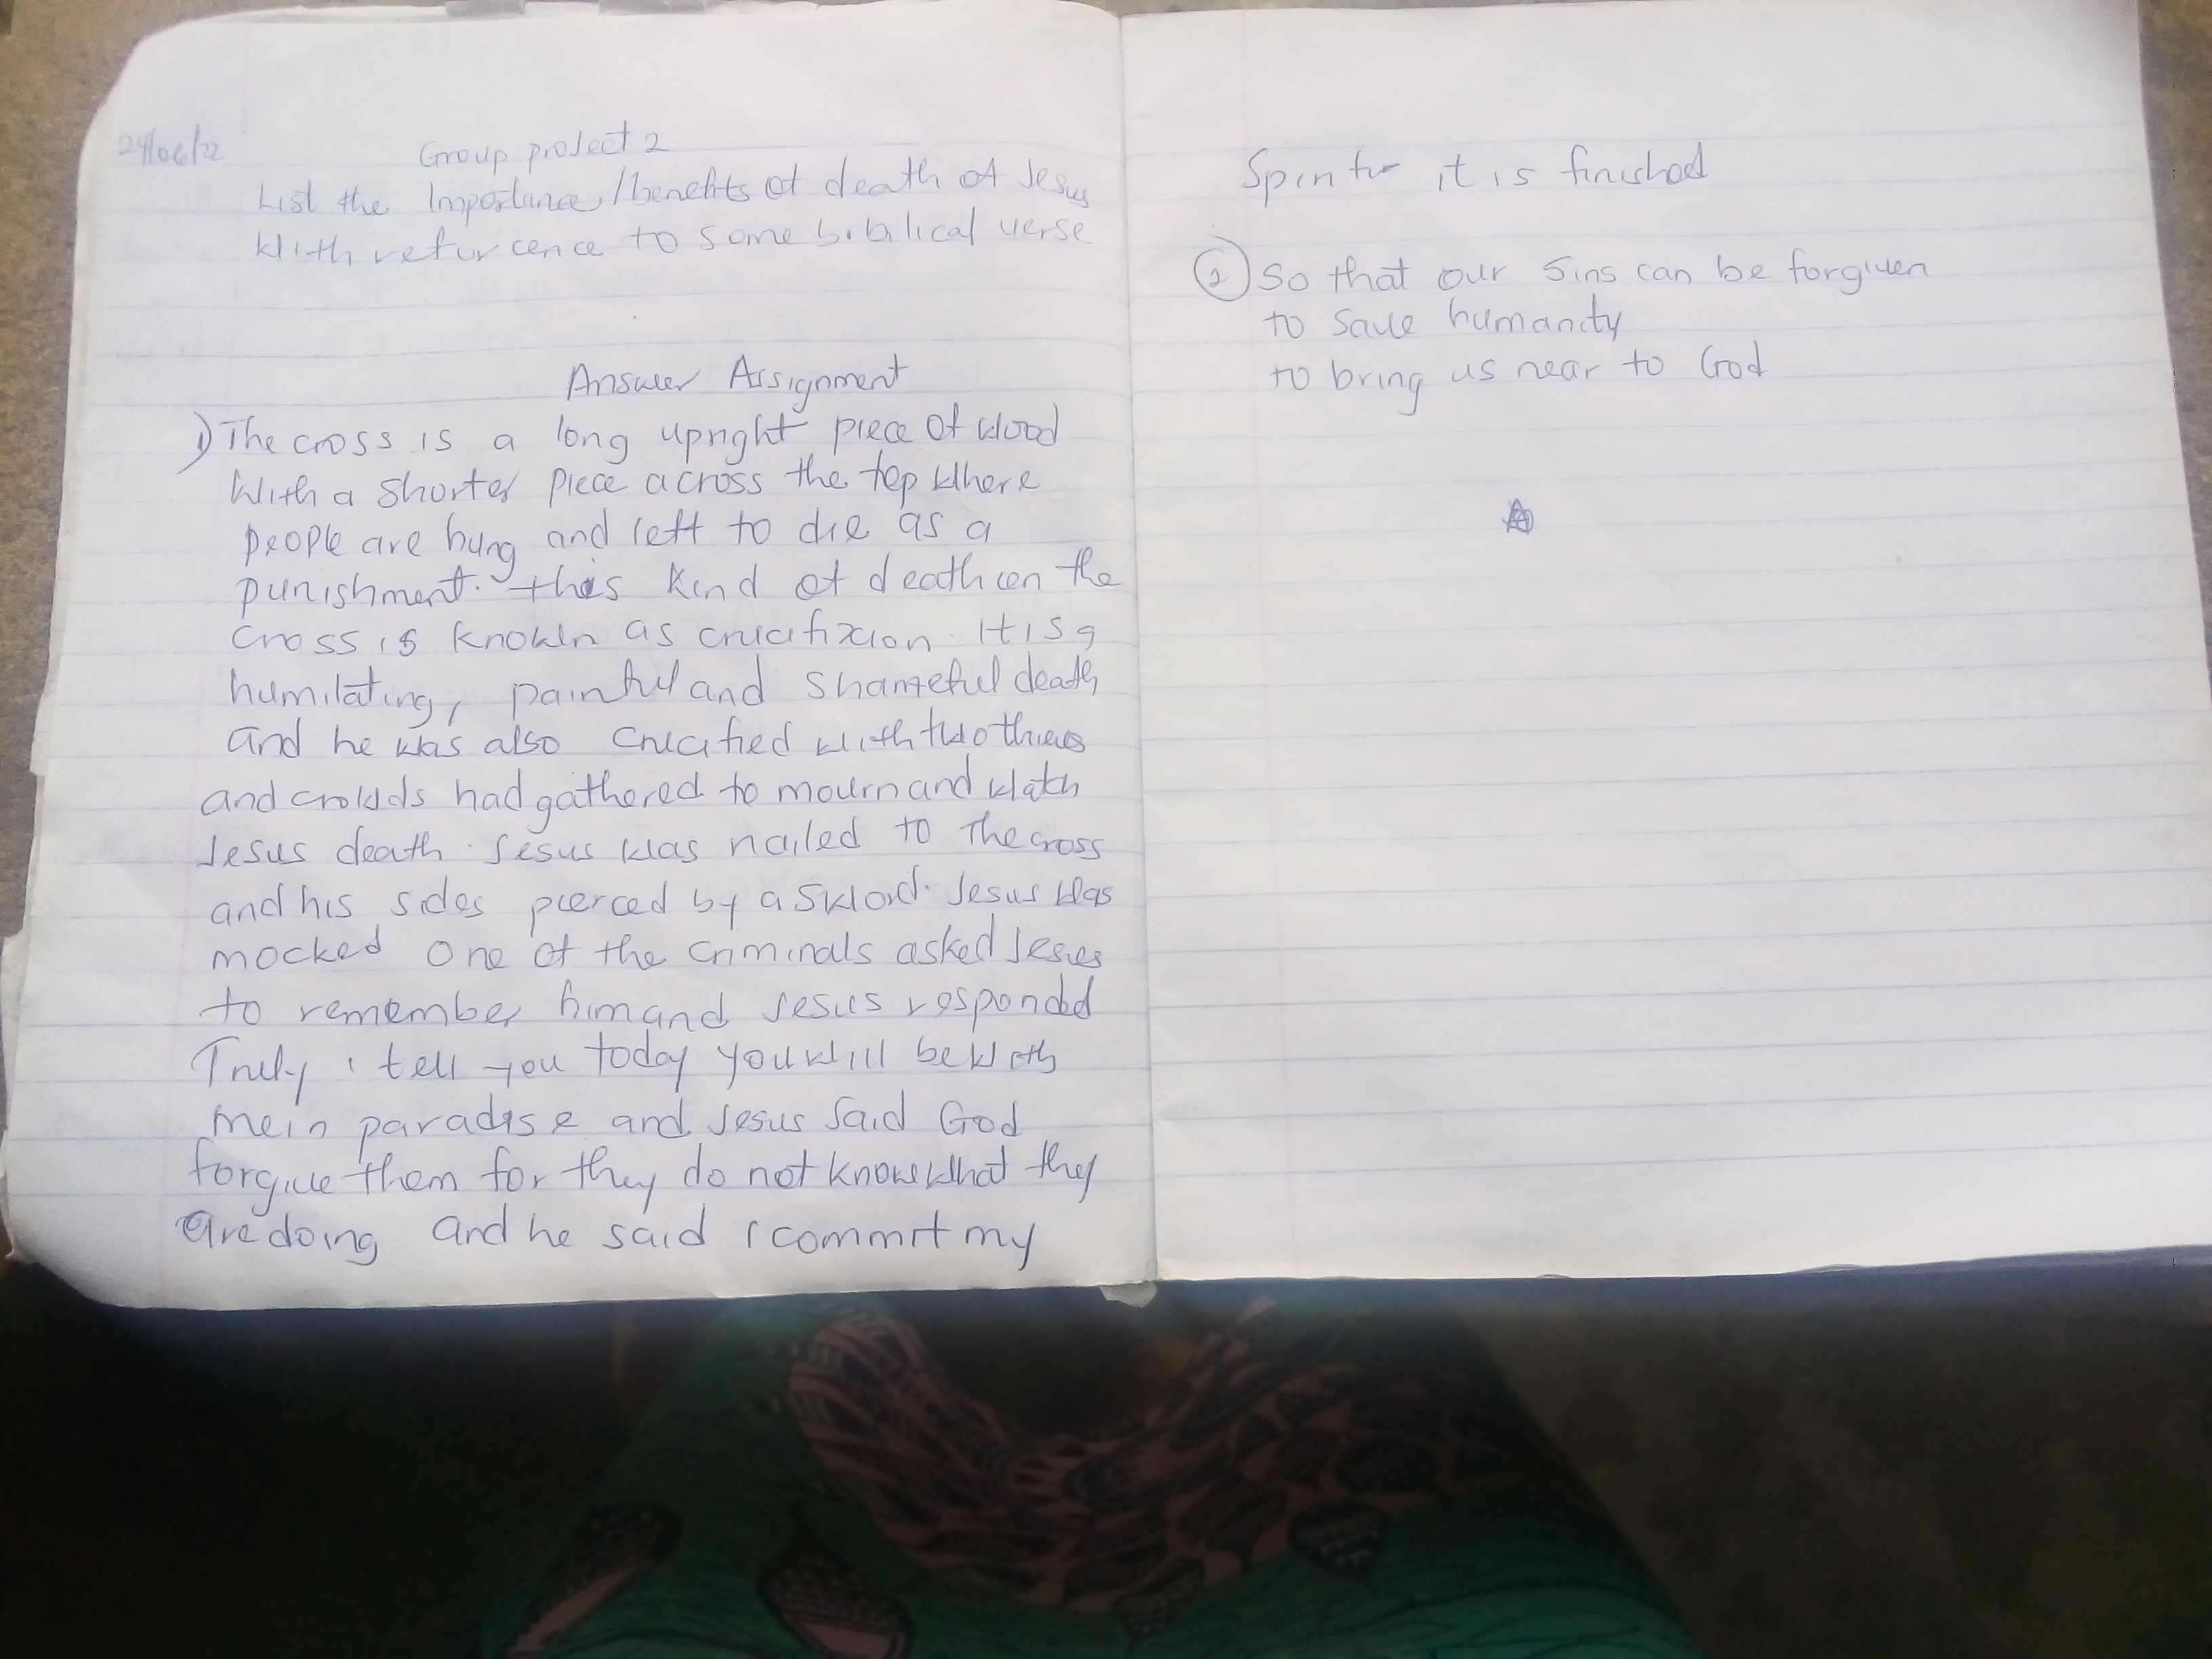 Group project 2
List the Importance/benefits of death of Jesus
With refurcence to some biblical verse
Answer Assignment
1) The cross is a long upright piece of wood
With a shorter piece across the top where
people are hung and left to die as a
punishment. this kind of death on the
cross is known as crucifixion. It is a
humilating, painful and shameful death
and he was also crucified with two thieves
and crowds had gathered to mourn and watch
Jesus death. Jesus was nailed to the cross
and his sides pierced by a sword. Jesus was
mocked one of the criminals asked Jesus
to remember him and Jesus responded
Truly i tell you today you will be with
me in paradise and Jesus said God
forgive them for they do not know what they
are doing and he said I commit my
it is finished
2 So that our sins can be forgiven
to save humanity
to bring us near to God